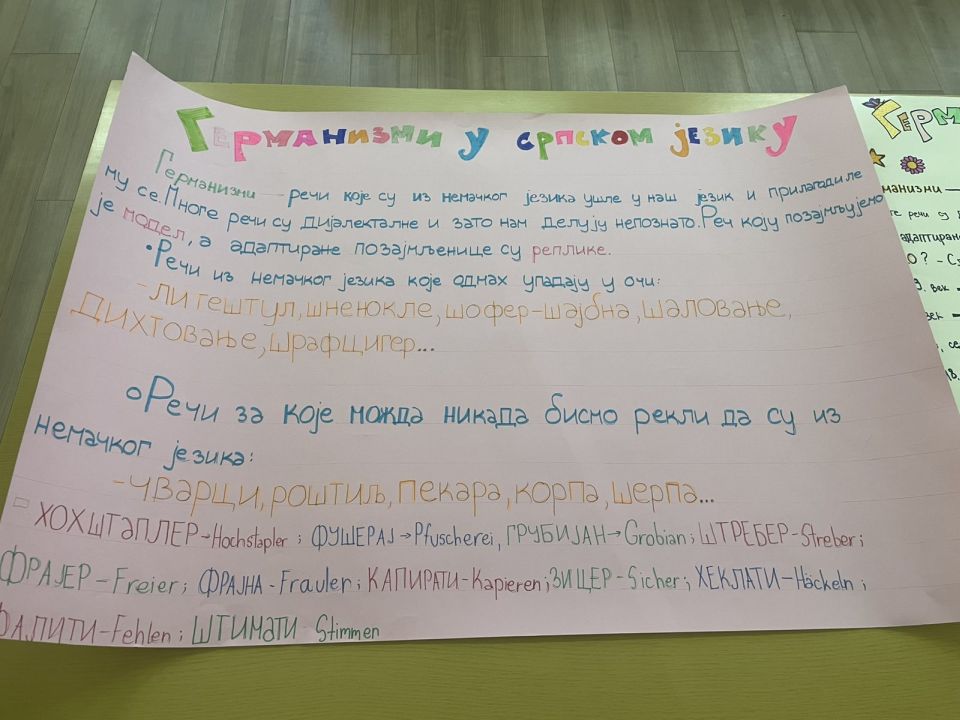 Германизми у српском језику
Германизми — речи које су из немачког језика ушле у наш језик и прилагодиле
му се. Многе речи су дијалекталне и зато нам делују непознато. Реч коју позајмљујемо
је модел, а адаптиране позајмљенице су реплике.
• Речи из немачког језика које одмах упадају у очи:
- ли гештул, шненокле, шофер-шајбна, шаловање,
дихтовање, шрафцигер...
• Речи за које можда никада бисмо рекли да су из
немачког језика:
- чварци, роштиљ, пекара, корпа, шерпа...
ХОХШТАПЛЕР → Hochstapler ; ФУШЕРАЈ → Pfuscherei, ГРУБИЈАН → Grobian ; ШТРЕБЕР - Streber ;
ФРАЈЕР - Freier ; ФРАЈНА - Fraulen ; КАПИРАТИ - Kapieren ; ЗИЦЕР - Sicher ; ХЕКЛАТИ - Häckeln ;
ФАЛИТИ - Fehlen ; ШТИМАТИ - Stimmen
Герм
манизми —
те речи су д
адаптиран
О? - Сл
век